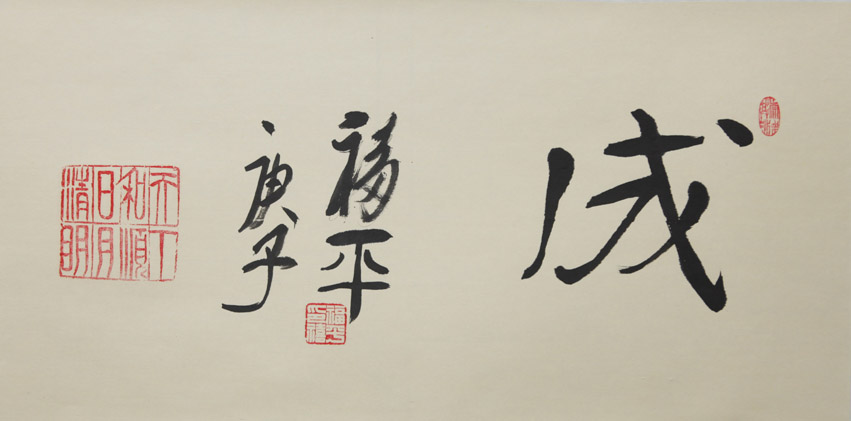 成
福平
庚子
天下
和順
日月
清明